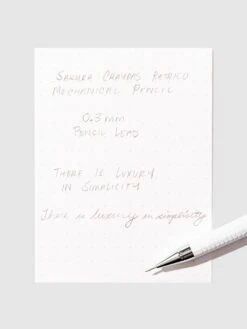 SAKURA CRAYPAS RETRICO
MECHANICAL PENCIL
0.3 mm
PENCIL LEAD
THERE IS LUXURY
IN SIMPLICITY
There is luxury in simplicity